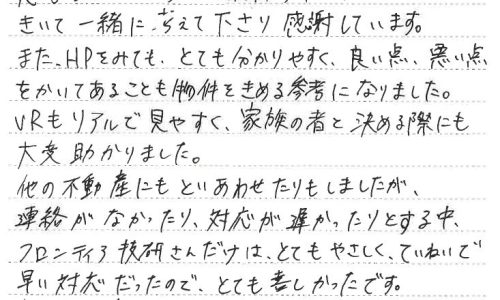 きいて一緒に考えて下さり感謝しています。
また、HPをみても、とても分かりやすく、良い点、悪い点
をかいてあることも物件をきめる参考になりました。
VRもリアルで見やすく、家族の者と決める際にも
大変助かりました。
他の不動産にもといあわせたりもしましたが、
連絡がなかったり、対応が遅かったりとする中、
フロンティア技研さんだけは、とてもやさしく、ていねいで
早い対応だったので、とても喜しかったです。